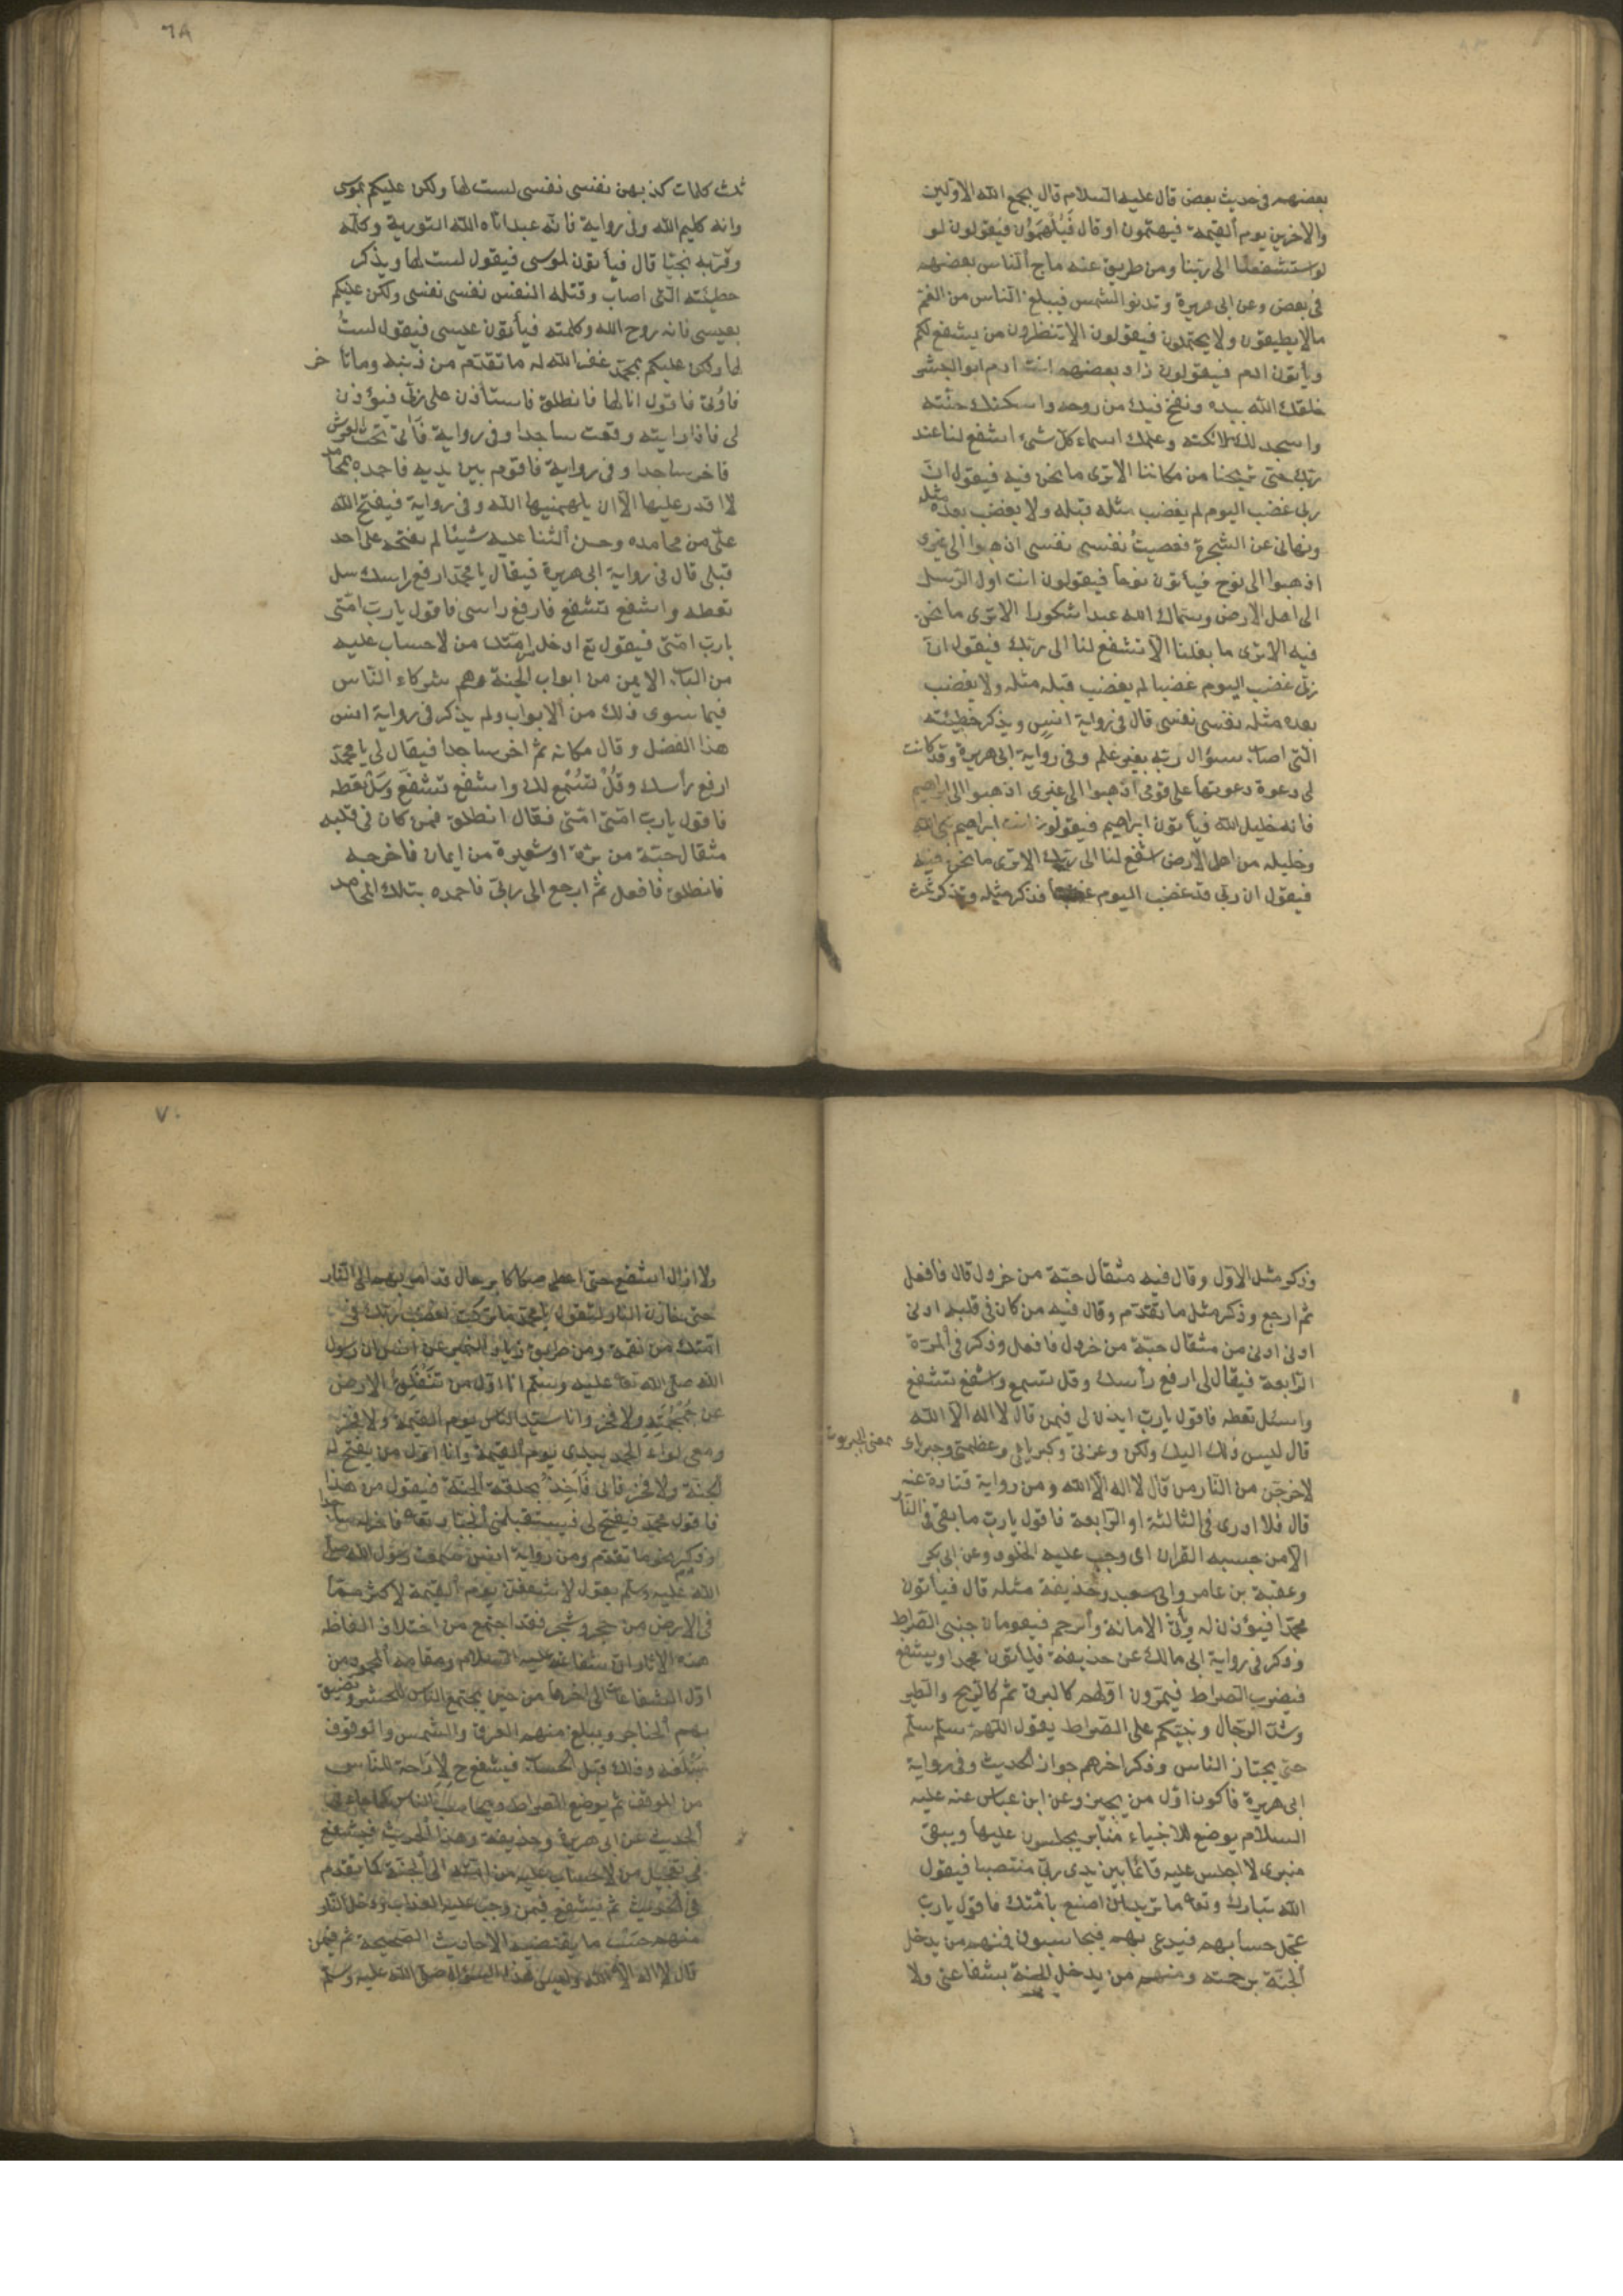 بعضهم فى حديث بعض قال عليه السلام قال يجمع الله الاولين
والاخرين يوم القيمة فيهتمون او قال فيلهمون فيقولون لو
لو استشفعنا الى ربنا ومن طريق عنه ماج الناس بعضهم
فى بعض وعن ابى هريرة وتدنو الشمس فيبلغ الناس من الغم
مالا يطيقون ولا يحتملون فيقولون الا تنظرون من يشفع لكم
فيأتون ادم فيقولون زاد بعضهم انت ادم ابو البشر
خلقك الله بيده ونفخ فيك من روحه واسكنك جنته
واسجد لك ملائكته وعلمك اسماء كل شئ اشفع لنا عند
ربك حتى يريحنا من مكاننا الا ترى ما نحن فيه فيقول ان
ربى غضب اليوم لم يغضب مثله قبله ولا يغضب بعده مثله
ونهانى عن الشجرة فعصيت نفسى نفسى اذهبوا الى غيرى
اذهبوا الى نوح فيأتون نوحا فيقولون انت اول الرسل
الى اهل الارض وسماك الله عبدا شكورا الا ترى ما نحن
فيه الا ترى ما بلغنا الا تشفع لنا الى ربك فيقول ان
ربى غضب اليوم غضبا لم يغضب قبله مثله ولا يغضب
بعده مثله نفسى نفسى قال فى رواية انس ويذكر خطيئته
التى اصاب سؤال ربه بغير علم وفى رواية ابى هريرة وقد كانت
لى دعوة دعوتها على قومى اذهبوا الى غيرى اذهبوا الى ابراهيم
فانه خليل الله فيأتون ابراهيم فيقولون انت ابراهيم نبى الله
وخليله من اهل الارض اشفع لنا الى ربك الا ترى ما نحن فيه
فيقول ان ربى قد غضب اليوم غضبا فذكر مثله ويذكر ثلث
٦٨
ثلث كلمات كذبهن نفسى نفسى لست لها ولكن عليكم بموسى
وانه كليم الله وفى رواية فانه عبد اتاه الله التورية وكلمه
وقربه نجيا قال فيأتون لموسى فيقول لست لها ويذكر
خطيئته التى اصاب وقتله النفس نفسى نفسى ولكن عليكم
بعيسى فانه روح الله وكلمته فيأتون عيسى فيقول لست
لها ولكن عليكم بمحمد غفر الله له ما تقدم من ذنبه وماتا خر
فاوتى فاقول انا لها فانطلق فاستأذن على ربى فيؤذن
لى فاذا رايته وقعت ساجدا وفى رواية فاتى تحت العرش
فاخر ساجدا وفى رواية فاقوم بين يديه فاحمده بمحامد
لا اقدر عليها الا ان يلهمنيها الله وفى رواية فيفتح الله
على من محامده وحسن الثنا عليه شيئا لم يفتحه على احد
قبلى قال فى رواية ابى هريرة فيقال يا محمد ارفع راسك سل
تعطه واشفع تشفع فارفع راسى فاقول يا رب امتى
يا رب امتى فيقول تع ادخل امتك من لا حساب عليه
من الباب الايمن من ابواب الجنة وهم شركاء الناس
فيما سوى ذلك من الابواب ولم يذكر فى رواية انس
هذا الفضل وقال مكانه ثم اخر ساجدا فيقال لى يا محمد
ارفع رأسك وقل تسمع لك واشفع تشفع وسل تعطه
فاقول يا رب امتى امتى فقال انطلق فمن كان فى قلبه
مثقال حبة من برة او شعيرة من ايمان فاخرجه
فانطلق فافعل ثم ارجع الى ربى فاحمده بتلك المحامد
وذكر مثل الاول وقال فيه مثقال حبة من خردل قال فافعل
ثم ارجع وذكر مثل ما تقدم وقال فيه من كان فى قلبه ادنى
ادنى ادنى من مثقال حبة من خردل فافعل وذكر فى المرة
الرابعة فيقال لى ارفع رأسك وقل تسمع واشفع تشفع
واسئل تعطه فاقول يا رب ايذن لى فيمن قال لا اله الا الله
قال ليس ذلك اليك ولكن وعزتى وكبريائى وعظمتى وجبرائى
بمعنى الجبروت
لاخرجن من النار من قال لا اله الا الله ومن رواية قتادة عنه
قال فلا ادرى فى الثالثة او الرابعة فاقول يا رب ما بقى فى النار
الا من حبسه القران اى وجب عليه الخلود وعن ابى بكر
وعقبة بن عامر وابى سعيد وحذيفة مثله قال فيأتون
محمدا فيؤذن له وتأتى الامانة والرحم فيقومان جنبى الصراط
وذكر فى رواية ابى مالك عن حذيفة فيأتون محمدا ويشفع
فيضرب الصراط فيمرون اولهم كالبرق ثم كالريح والطير
وشد الرجال ونبيكم على الصراط يقول اللهم سلم سلم
حتى يجتاز الناس وذكر اخرهم جوازا الحديث وفى رواية
ابى هريرة فاكون اول من يجيز وعن ابن عباس عنه عليه
السلام يوضع للانبياء منابر يجلسون عليها ويبقى
منبرى لا اجلس عليه قائما بين يدى ربى منتصبا فيقول
الله تبارك وتعا ما تريد ان اصنع بامتك فاقول يا رب
عجل حسابهم فيدعى بهم فيحاسبون فمنهم من يدخل
الجنة برحمته ومنهم من يدخل الجنة بشفاعتى ولا
٧٠
ولا ازال اشفع حتى اعطى صكاكا برجال قد امر بهم الى النار
حتى خازن النار ليقول يا محمد ما تركت لغضب ربك فى
امتك من نقمة ومن طريق زياد النميرى عن انس ان رسول
الله صلى الله تعا عليه وسلم انا اول من تنفلق الارض
عن جمجمته ولا فخر وانا سيد الناس يوم القيمة ولا فخر
ومعى لواء الحمد بيدى يوم القيمة وانا اول من يفتح له
الجنة ولا فخر فاتى فآخذ بحلقة الجنة فيقول من هذا
فاقول محمد فيفتح لى فيستقبلنى الجبار تعا فاخر له ساجدا
وذكر نحو ما تقدم ومن رواية انيس سمعت رسول الله صلى
الله عليه وسلم يقول لاشفعن يوم القيمة لاكثر مما
فى الارض من حجر وشجر فقد اجتمع من اختلاف الفاظ
هذه الاثار ان شفاعته عليه السلام ومقامه المحمود من
اول الشفاعات الى اخرها من حين يجتمع الناس للحشر وتضيق
بهم الحناجر ويبلغ منهم العرق والشمس والوقوف
مبلغه وذلك قبل الحساب فيشفع ح لاراحة الناس
من الموقف ثم يوضع الصراط ويحاسب الناس كما جاء فى
الحديث عن ابى هريرة وحذيفة وهذا الحديث فيشفع
فى تعجيل من لا حساب عليه من امته الى الجنة كما تقدم
فى الحديث ثم يشفع فيمن وجب عليه العذاب ودخل النار
منهم حسب ما يقتضيه الاحاديث الصحيحة ثم فيمن
قال لا اله الا الله وليس هذا لسواه صلى الله عليه وسلم